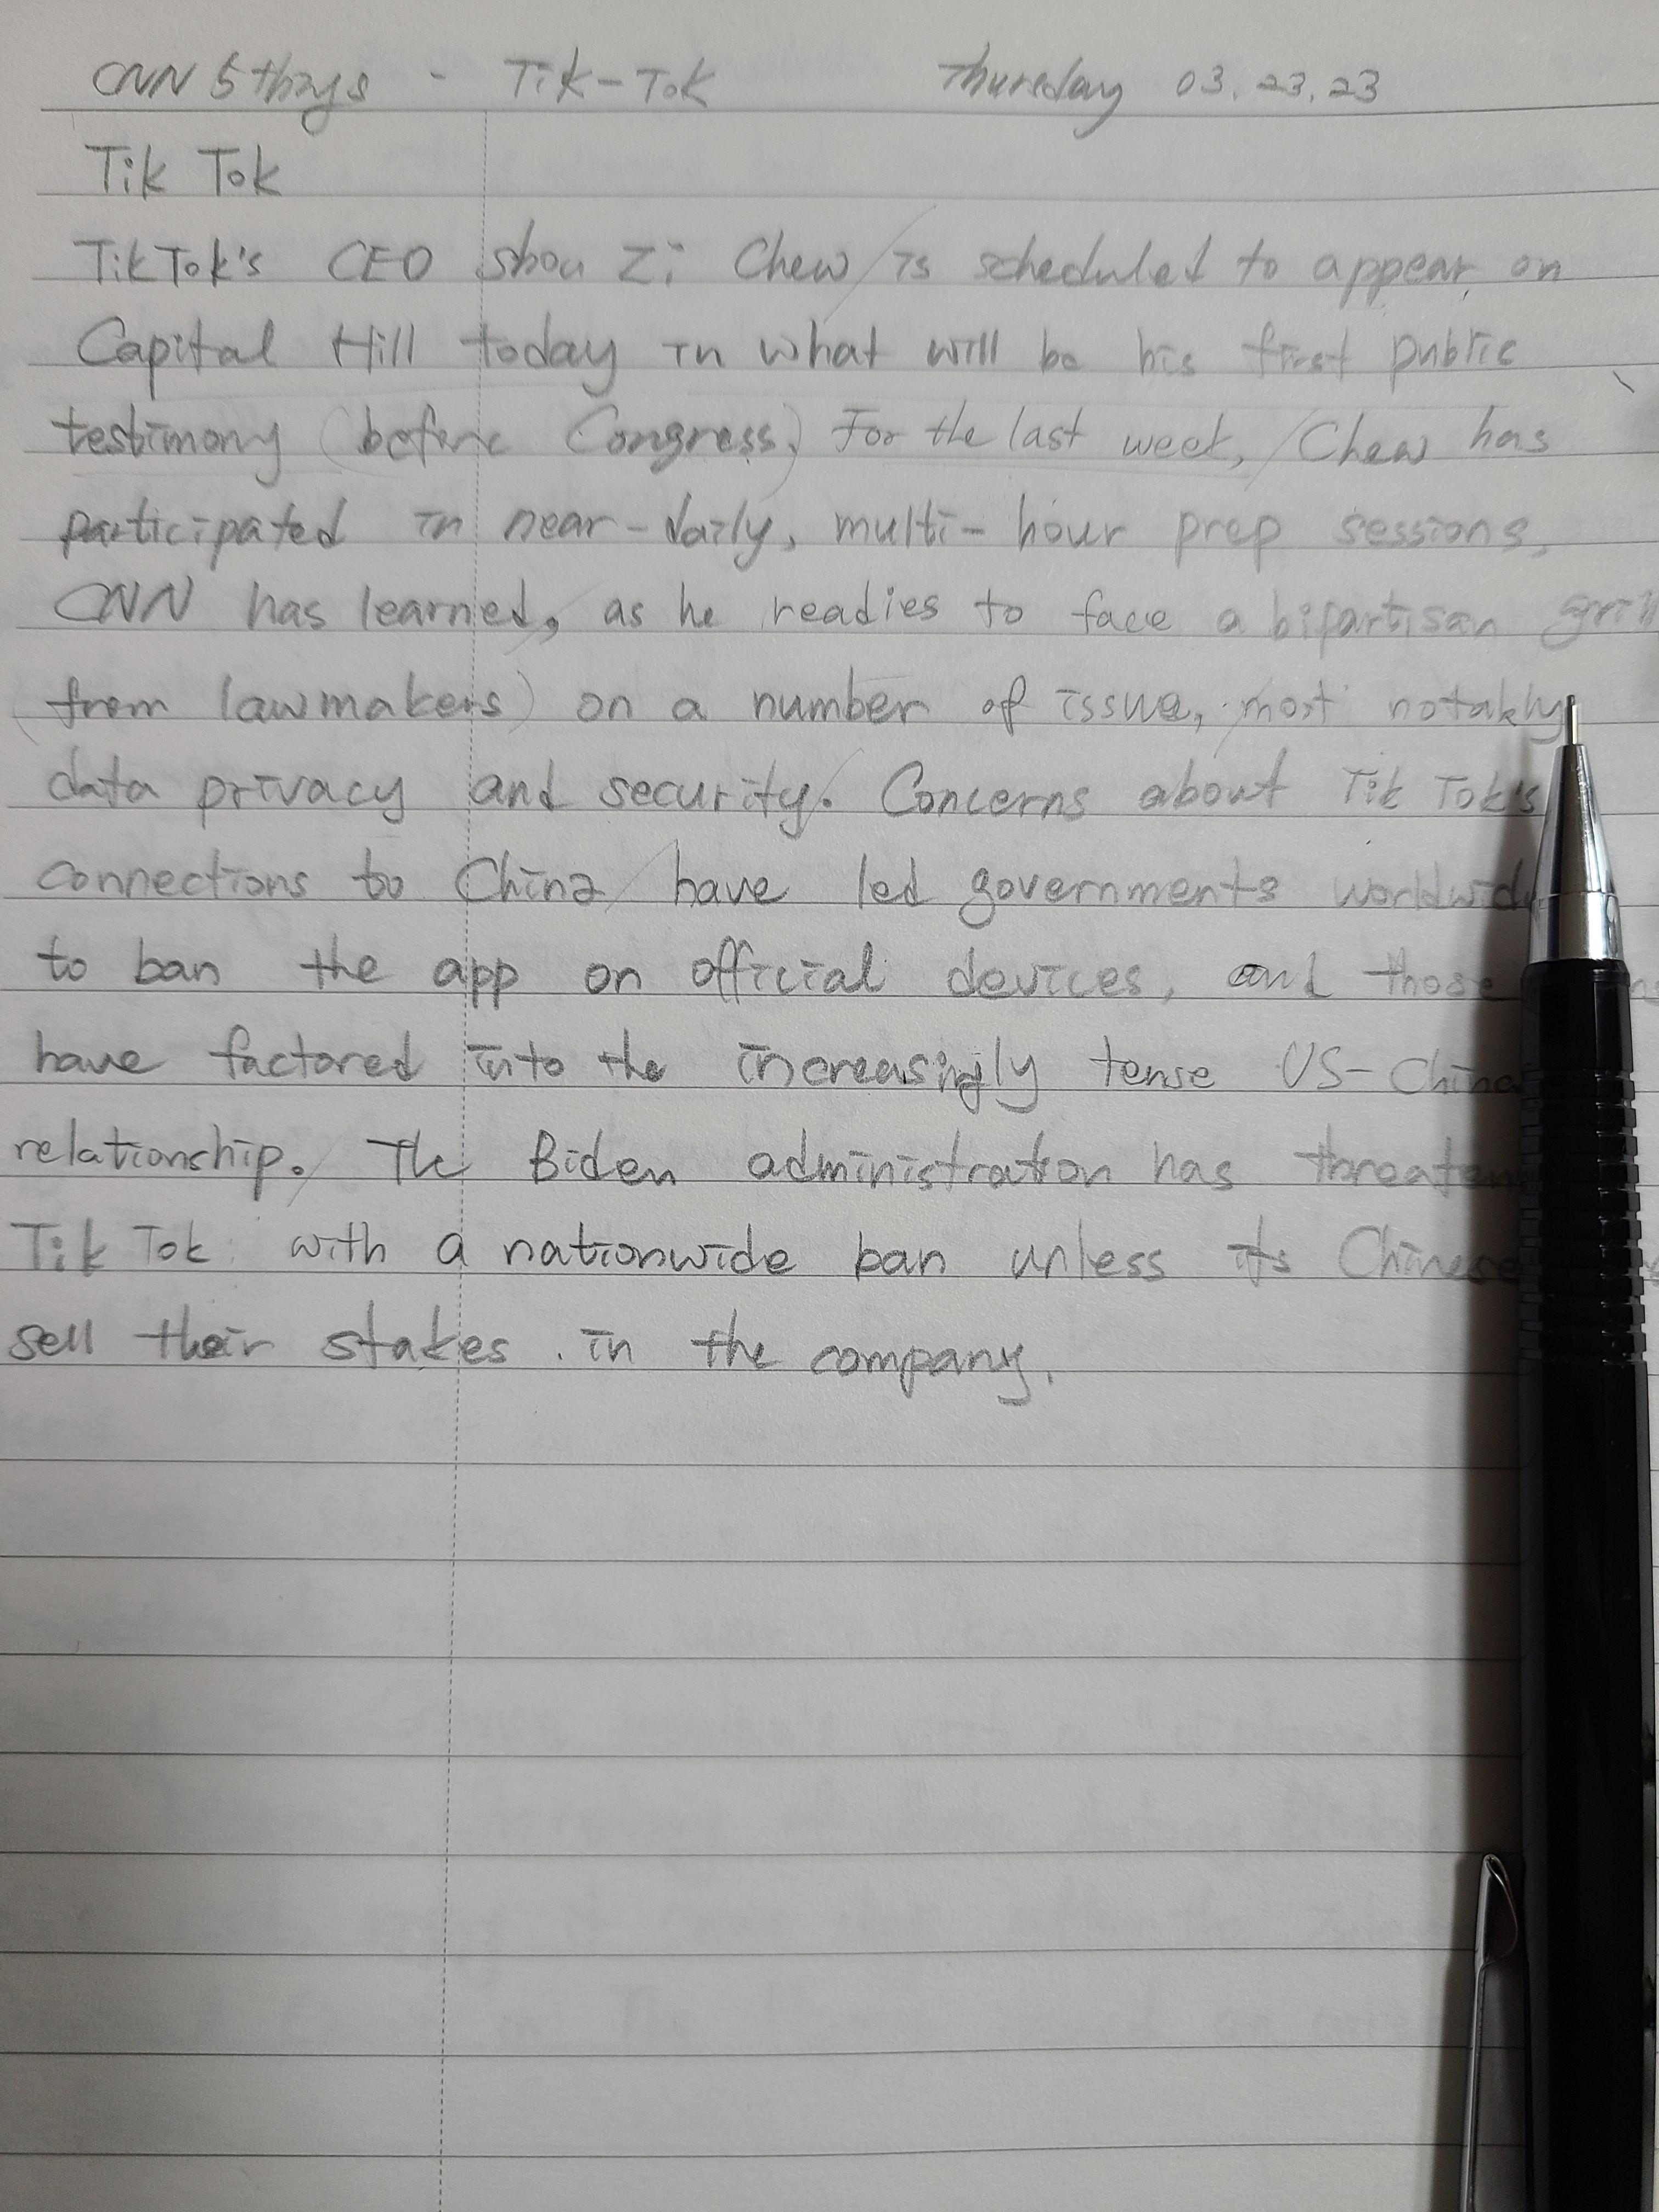 CNN 5 things - Tik-Tok Thursday 03.23.23
Tik Tok
TikTok's CEO Shou Zi Chew / is scheduled to appear on
Capital Hill today in what will be his first public
testimony (before Congress). For the last week, / Chew has
participated in near-daily, multi-hour prep sessions,
CNN has learned, / as he readies to face a bipartisan
(from lawmakers) on a number of issue, / most notably
data privacy and security. / Concerns about Tik Tok's
connections to China / have led governments
to ban the app on official devices, and those
have factored into the increasingly tense US-China
relationship. / The Biden administration has
Tik Tok with a nationwide ban unless its Chinese
sell their stakes in the company.